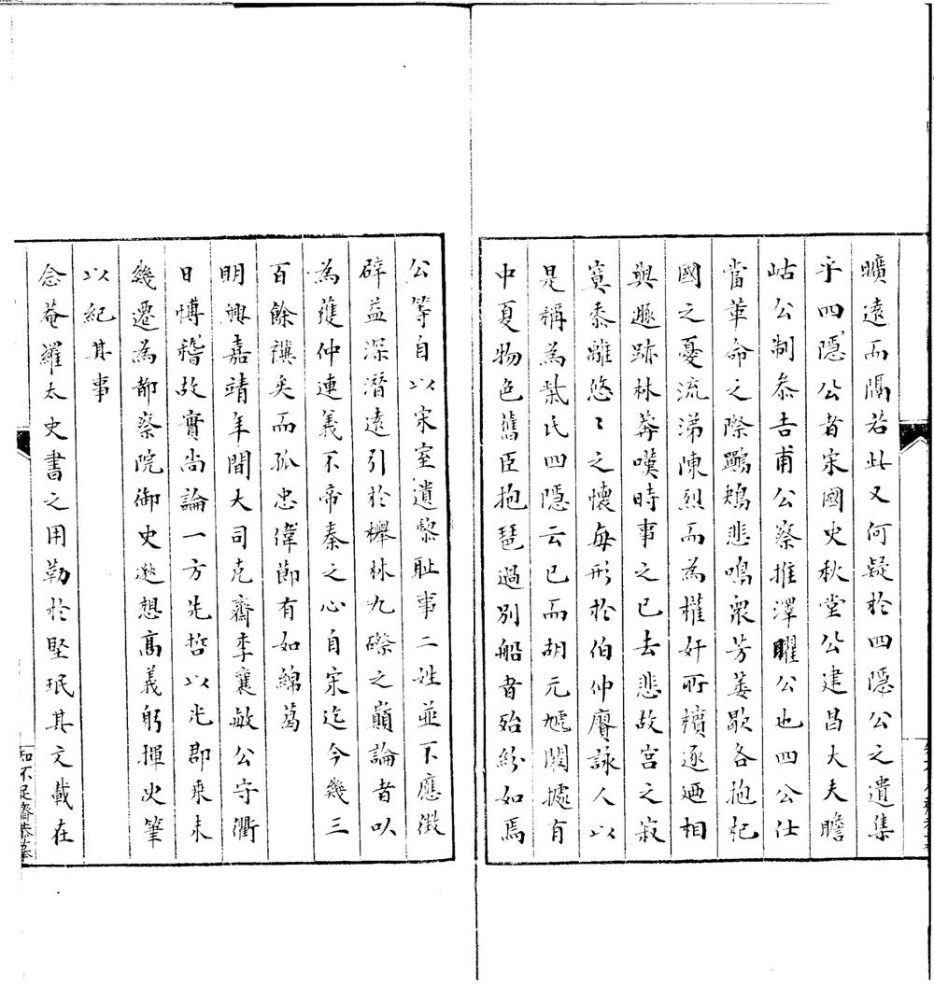 曠遠而隔若此又何疑於四隱公之遺集
乎四隱公者宋國史秋堂公建昌大夫瞻
岵公制叅吉甫公察推澤臞公也四公仕
當革命之際鶗鴂悲鳴衆芳萎歇各抱杞
國之憂流涕陳烈而為權奸所擯逐迺相
與遯跡林莽嘆時事之已去悲故宫之寂
寞黍離悠〻之懷每形於伯仲賡詠人以
是稱為柴氏四隱云已而胡元虓闞據有
中夏物色舊臣抱琵琶過別船者殆紛如焉
公等自以宋室遺黎耻事二姓並不應徵
辟益深潛遠引於櫸林九磜之巔論者以
為蓰仲連義不帝秦之心自宋迄今幾三
百餘禩矣而孤忠偉節有如綿葛
明興嘉靖年間大司克齋李襄敏公守衢
日博稽故實尚論一方先哲以光郡乘未
幾遷為都察院御史邀想髙義躬揮史筆
以紀其事
念菴羅太史書之用勒於堅珉其文載在
知不足齋恭摹